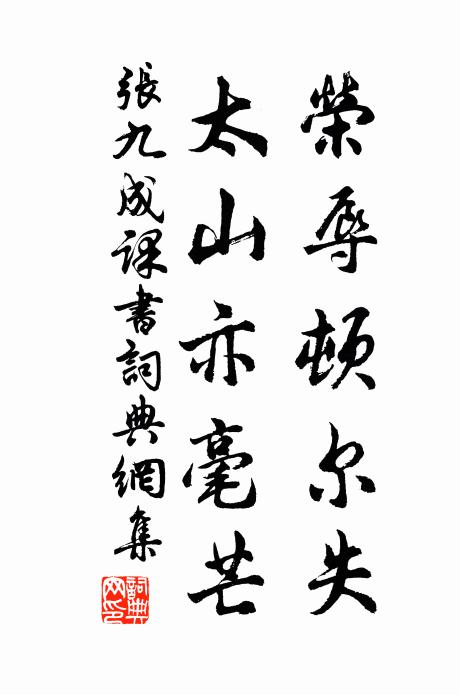 榮辱頓尔失
太山亦毫芒
張九成課書詞典網集
詞典網印